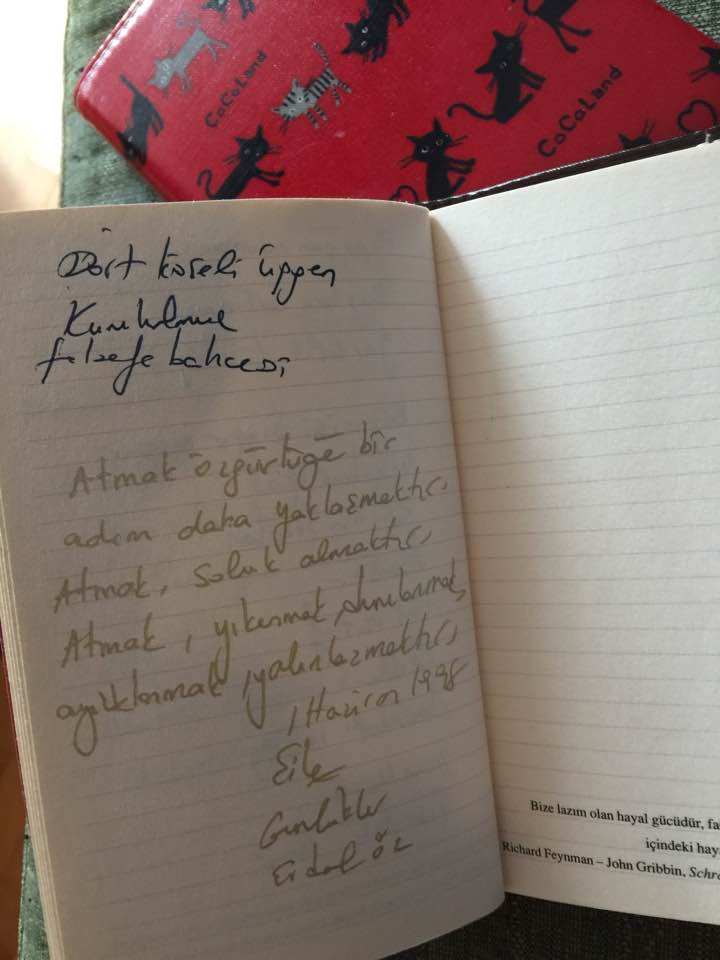 CoCoLand
CoCoLand
Dört köşeli üçgen
felsefe bahcesi
Atmak özgürlüğe bir
adım daha yaklaşmaktır,
Atmak, soluk almaktır,
Atmak, yıkanmak, arınmak,
ayıklanmak, yalınlaşmaktır,
1 Haziran 1998
Günlükler
Erdal Öz
Bize lazım olan hayal gücüdür, fa
içindeki hay
Richard Feynman – John Gribbin, Schrö